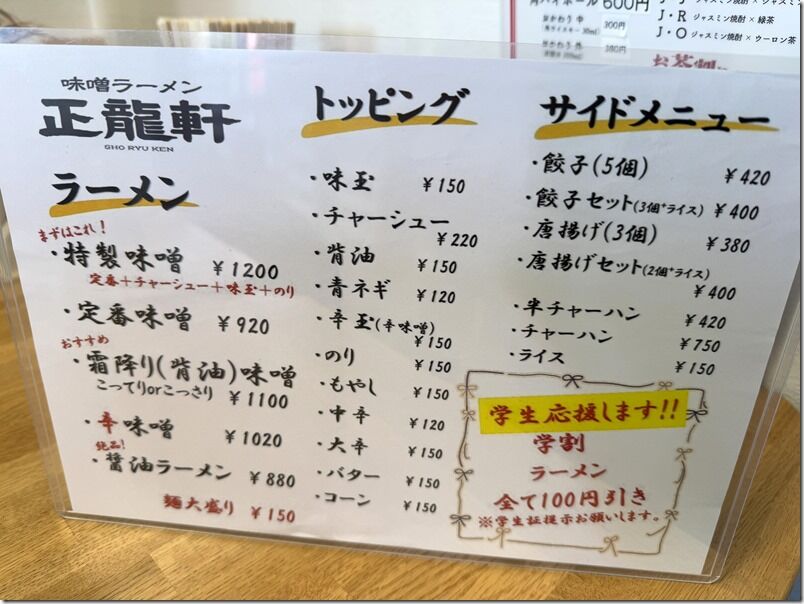 角ハイボール 600円
おかわり 中
(角ウイスキー 30ml) 300円
おかわり 外 380円
J・R ジャスミン焼酎 × 緑茶
J・O ジャスミン焼酎 × ウーロン茶
味噌ラーメン
正龍軒
GHO RYU KEN
ラーメン
まずはこれ!
・特製味噌 ¥1200
定番+チャーシュー+味玉+のり
・定番味噌 ¥920
おすすめ
・霜降り(背油)味噌
こってりorこっさり ¥1100
・辛味噌 ¥1020
絶品!
・醤油ラーメン ¥880
麺大盛り ¥150
トッピング
・味玉 ¥150
・チャーシュー
¥220
・背油 ¥150
・青ネギ ¥120
・辛玉(辛味噌)
¥150
・のり ¥150
・もやし ¥150
・中辛 ¥120
・大辛 ¥150
・バター ¥150
・コーン ¥150
サイドメニュー
・餃子(5個) ¥420
・餃子セット(3個+ライス) ¥400
・唐揚げ(3個) ¥380
・唐揚げセット(2個+ライス)
¥400
・半チャーハン ¥420
・チャーハン ¥750
・ライス ¥150
学生応援します!!
学割
ラーメン
全て100円引き
※学生証提示お願いします。